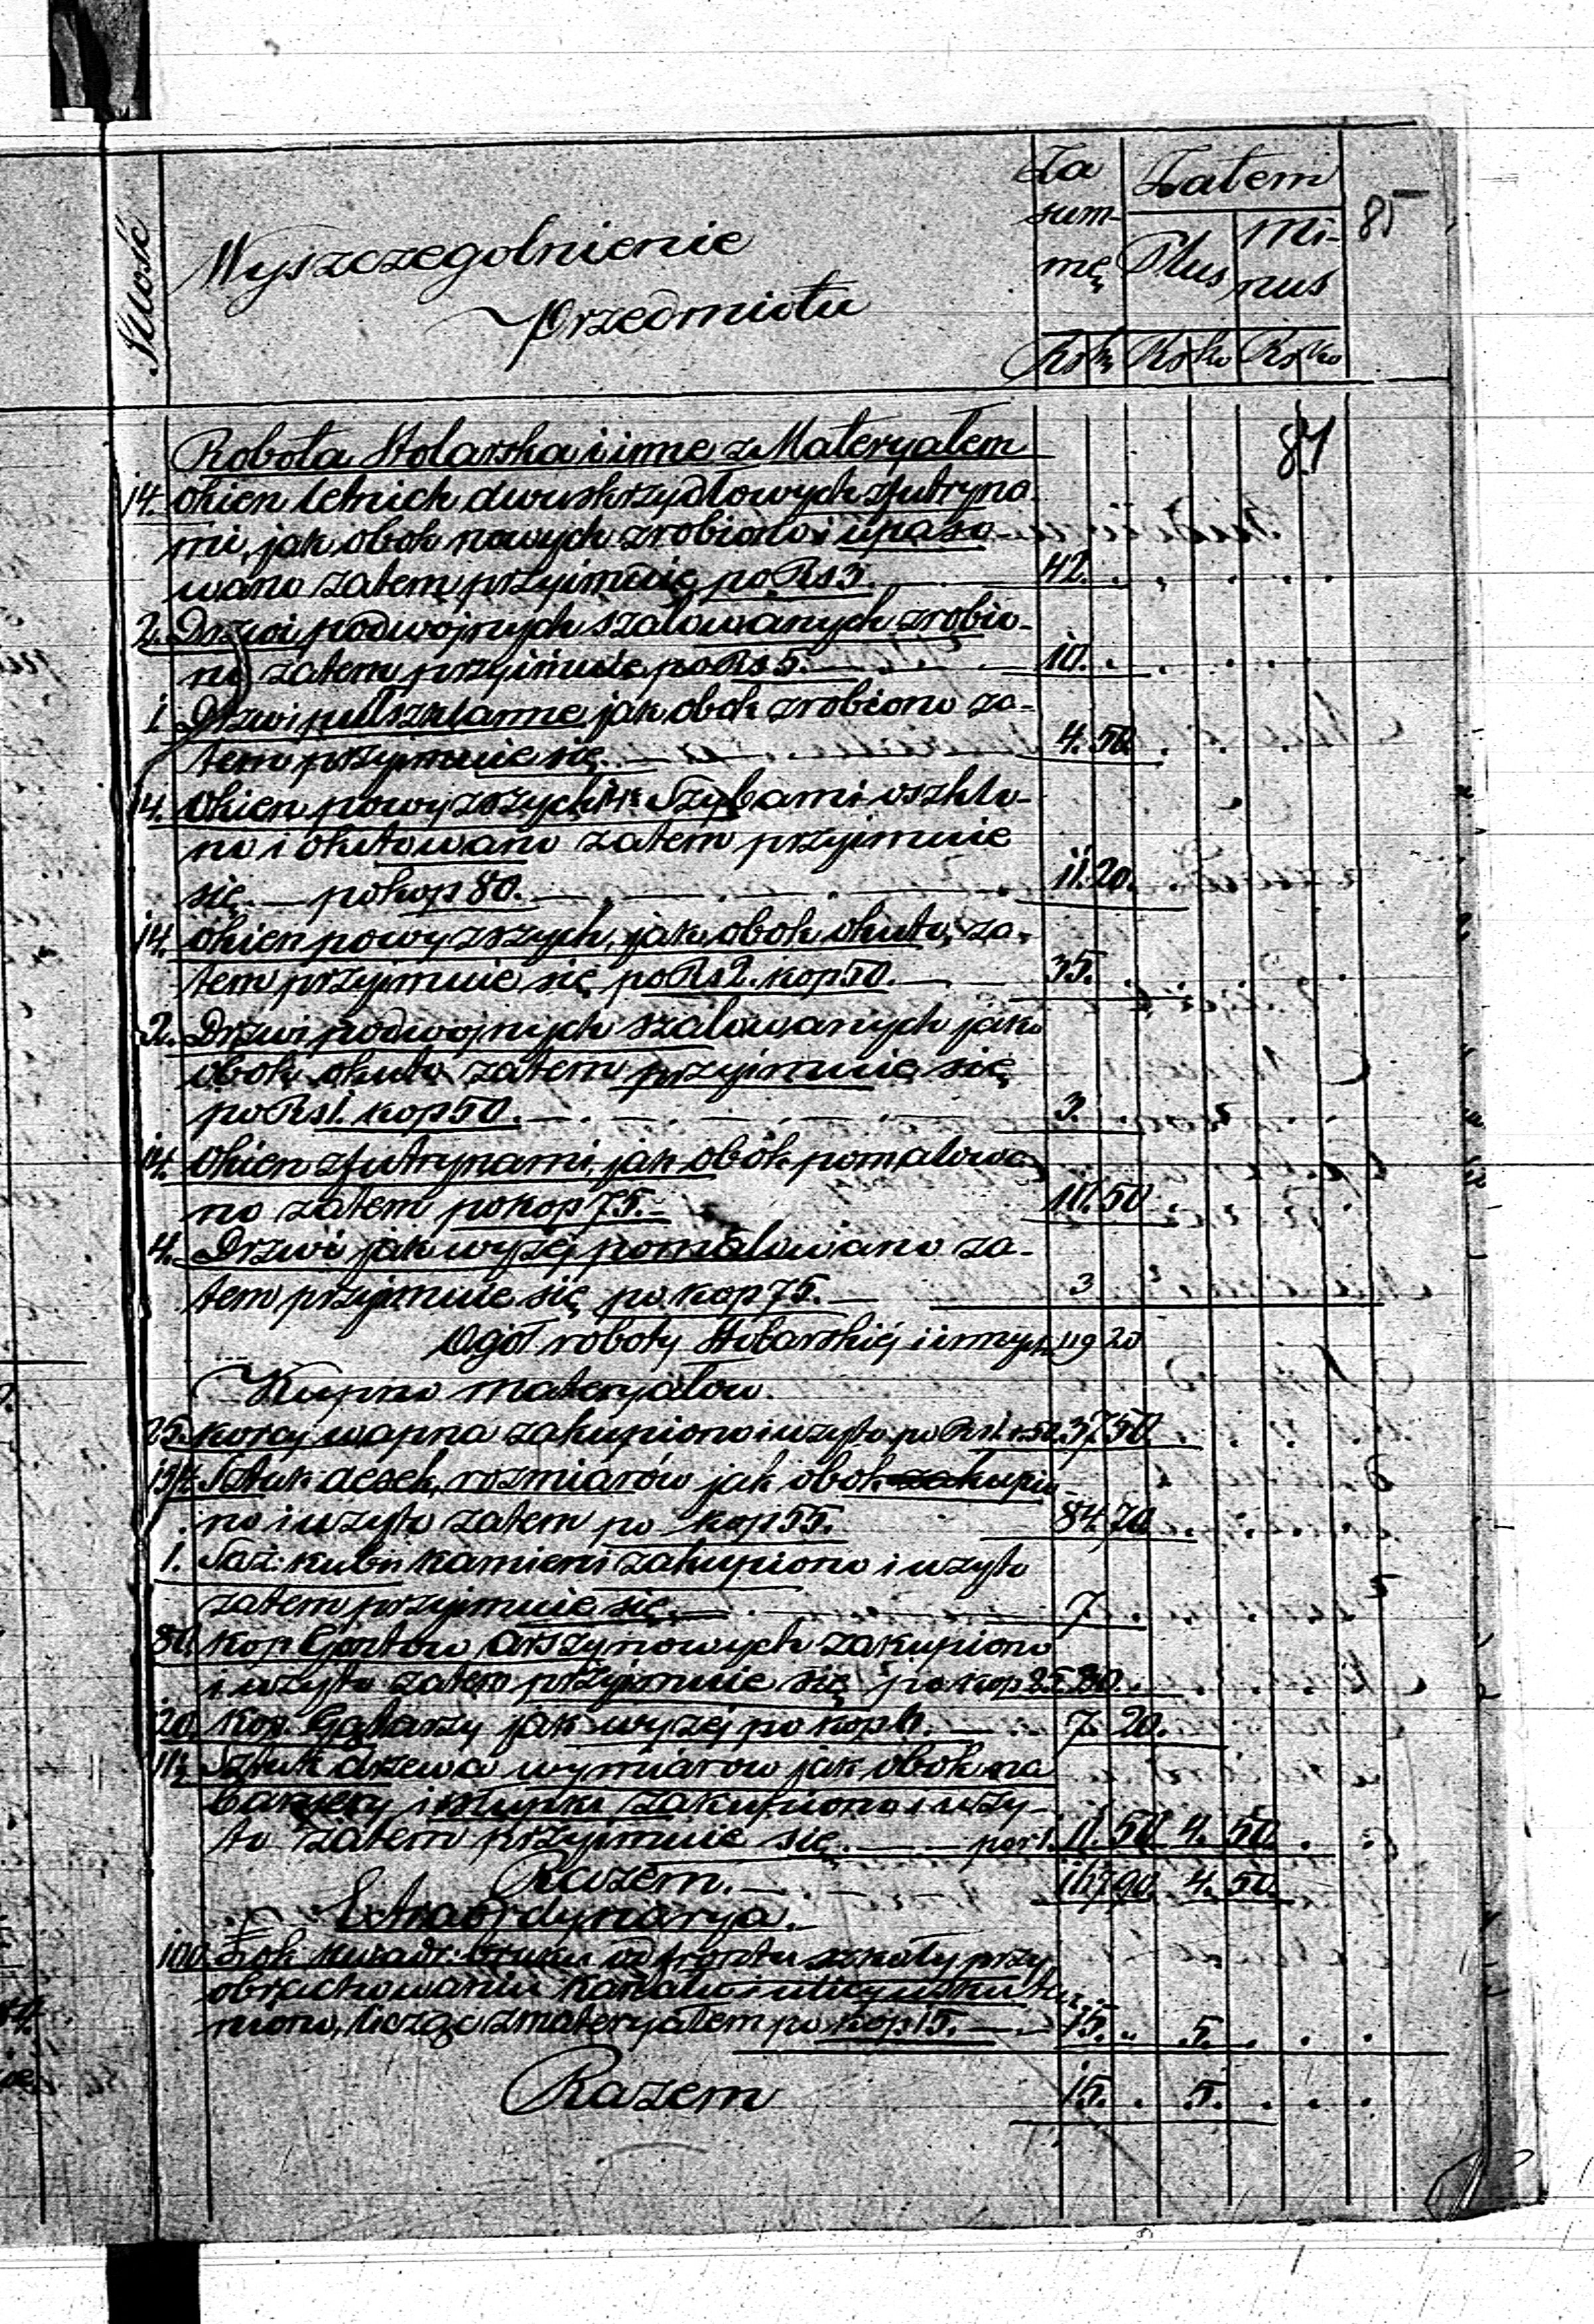 Ilość
Wyszczegolnienie
Przedmiotu
Za
sum-
mę
Zatem
Plus
Mi-
nus
85
Rs k Rs ko Rs ko
87
Robota Stolarska i inne z Materyałem
14. Okien letnich dwuskrzydłowych z futryna
mi, jak obok nowych zrobiono i upaso
wano zatem przyjmuię po Rs 3. 42.
2. Drzwi podwojnych szalowanych zrobio-
no zatem przyimuie po Rs 5. 10.
1. Drzwi pułszklanne jak obok zrobiono za-
tem przyjmuie się 4. 50.
14. Okien powyzszych Szybami oszklo-
no i okitowano zatem przyjmuie
się po kop 80. 11. 20.
14. okien powyzszych, jak obok okuto, za-
tem przyjmuie się po Rs 2. kop 50. 35.
2. Drzwi podwojnych szalowanych jak
obok okuto zatem przyjmuię się
po Rs 1. kop 50. 3.
14. Okien z futrynami, jak obok pomalowa
no zatem po kop 75. 10. 50
4. Drzwi jak wyzej pomalowano za-
tem przyjmuie się po kop 75. 3
Ogół roboty Stolarskiéj i innych 119 20
Kupno materyałow.
25. korcy wapna zakupiono i uzyto po Rs 1 k 50 37 50
154 Sztuk desek, rozmiarów jak obok zakupio
no i uzyto zatem po kop 55. 84. 70.
1. Saż: kubi: kamieni zakupiono i uzyto
zatem przyjmuie się 7.
80. kop Gontow arszynowych zakupiono
i uzyto zatem przyjmuie się po kop 25. 20.
20. kop. jak wyzej po kop 7. 20.
11½ Sztuk drzewa wymiarow jak obok na
barjery i słupki zakupiono i uzy-
to zatem przyjmuie się po r 1. 11. 50. 4. 50.
Razem. 167 90. 4. 50.
Extraordynarya.
100. Łok: kwadr: bruku od frontu szkoły przy
obruchowaniu kanału i ulicy
niono, licząc z materyałem po kop 15. 15. „ 5.
Razem 15. 5.